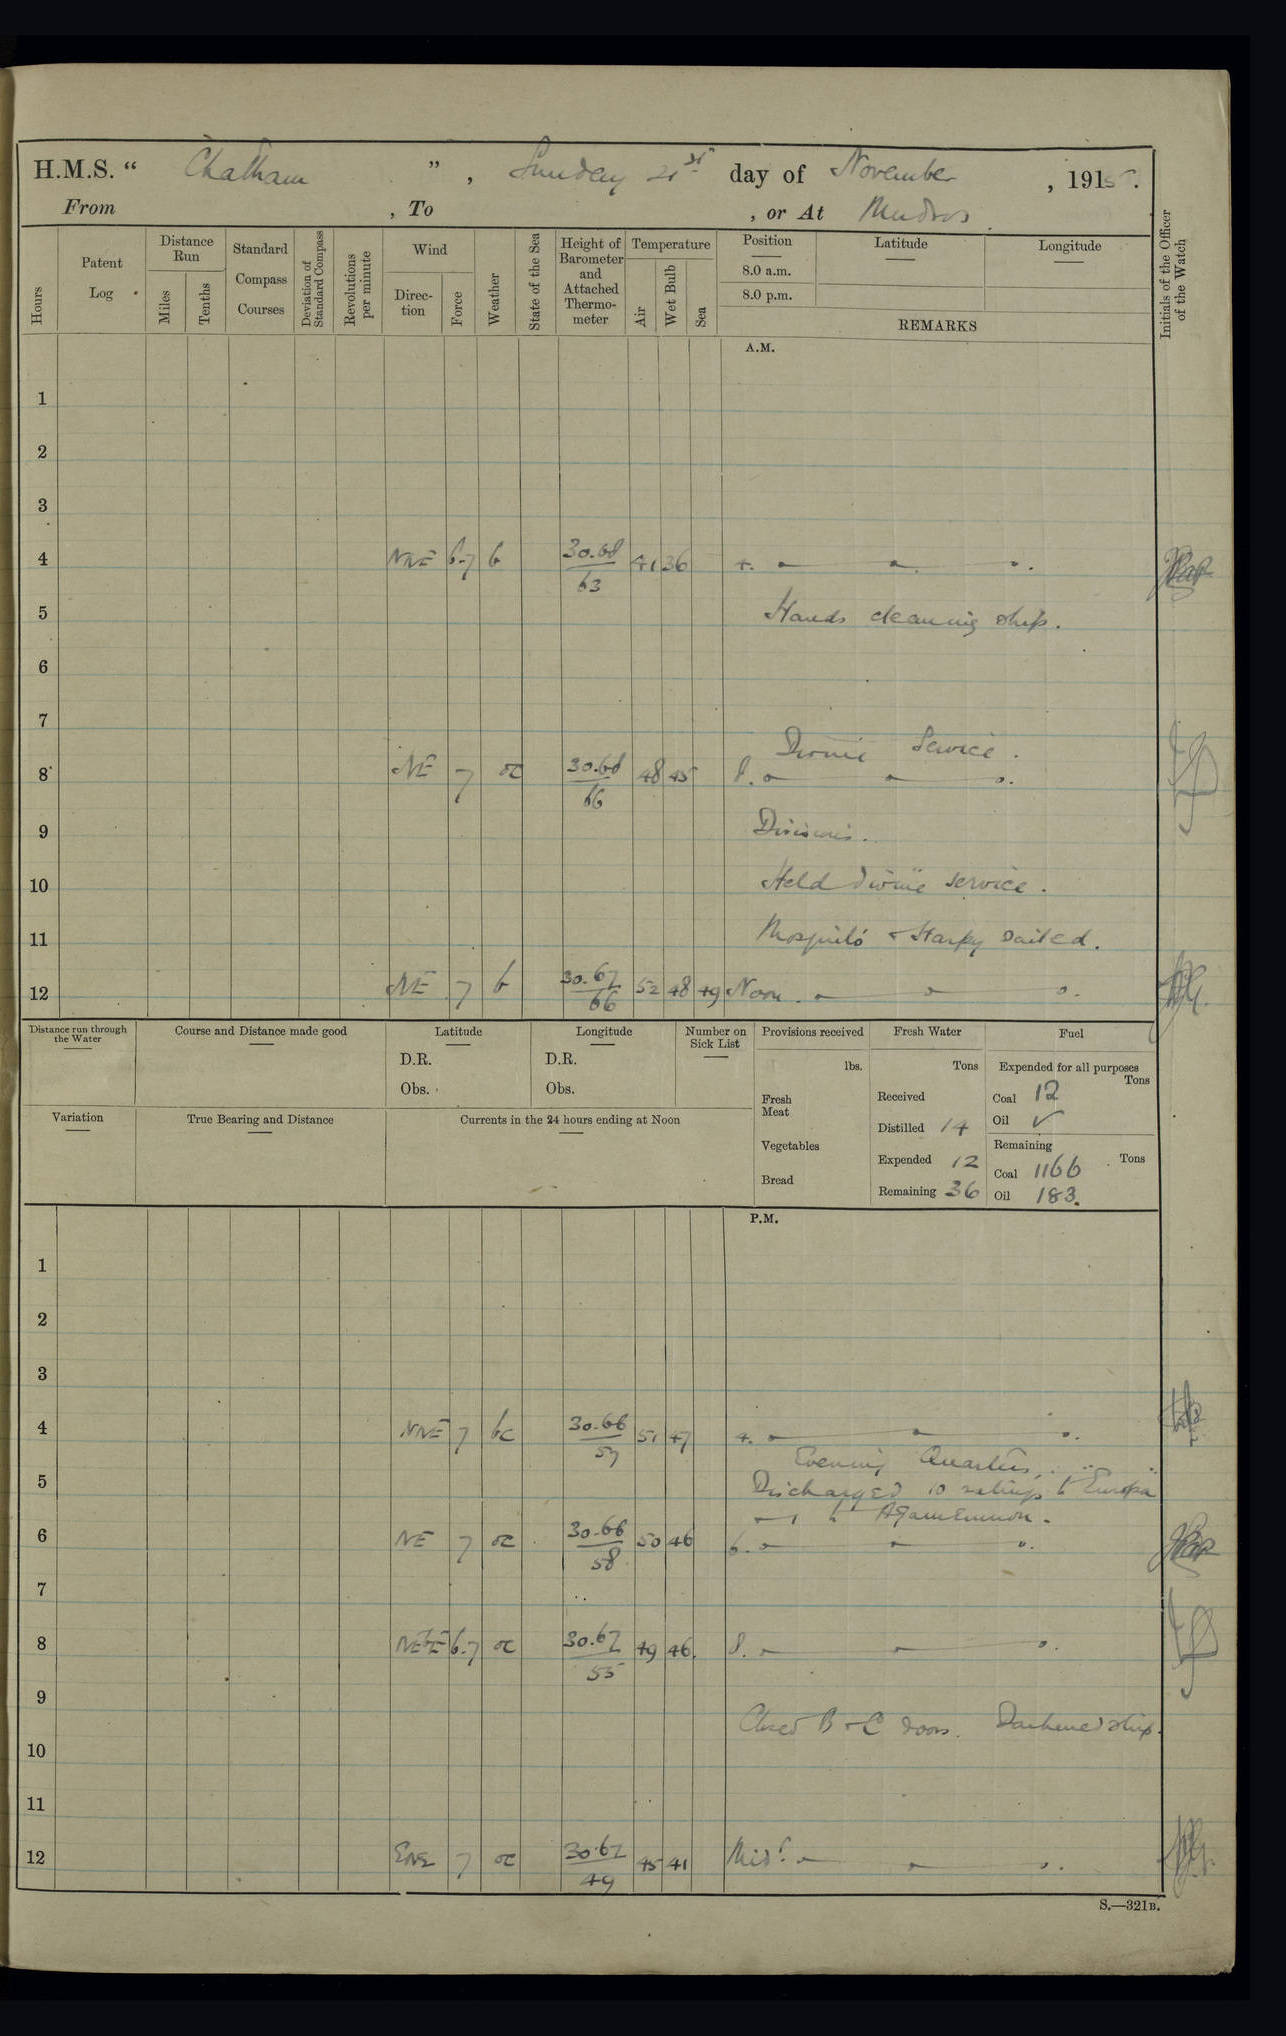 H.M.S. “ Chatham ” , Sunday 21st day of November , 1915.
From , To , or At Mudros.
Hours
Patent Log
Distance Run
Miles
Tenths
Standard Compass Courses
Deviation of Standard Compass
Revolutions per minute
Wind
Direc-tion
Force
Weather
State of the Sea
Height of Barometer and Attached Thermo-meter
Temperature
Air
Wet Bulb
Sea
Position
8.0 a.m.
8.0 p.m.
Latitude
Longitude
REMARKS
Initials of the Officer of the Watch
A.M.
1
2
3
4 NNE 6-7 b 30.68 63 41 36 4.
5 Hands cleaning ship.
6
7
Divine Service.
8 NE 7 oc 30.68 66 48 45 8.
9 Divisions.
10 Held divine service.
11 Mosquito & Harpy sailed.
12 NE 7 b 30.67 66 52 48 49 Noon.
Distance run through the Water
Course and Distance made good
Latitude
D.R.
Obs.
Longitude
D.R.
Obs.
Number on Sick List
Provisions received
lbs.
Fresh Meat
Vegetables
Bread
Fresh Water
Tons
Received
Distilled 14
Expended 12
Remaining 36
Fuel
Expended for all purposes
Tons
Coal 12
Oil ✓
Remaining
Tons
Coal 1166
Oil 183.
Variation
True Bearing and Distance
Currents in the 24 hours ending at Noon
P.M.
1
2
3
4 NNE 7 bc 30.66 57 51 47 4.
Evening Quarters.
5 Discharged 10 ratings to Europa
& 1 to Agamemnon.
6 NE 7 oc 30.66 58 50 46 6.
7
8 NEbE 6-7 oc 30.67 55 49 46 8.
9
Closed B & C doors. Darkened ship.
10
11
12 ENE 7 oc 30.67 49 45 41 Midt.
S.—321B.